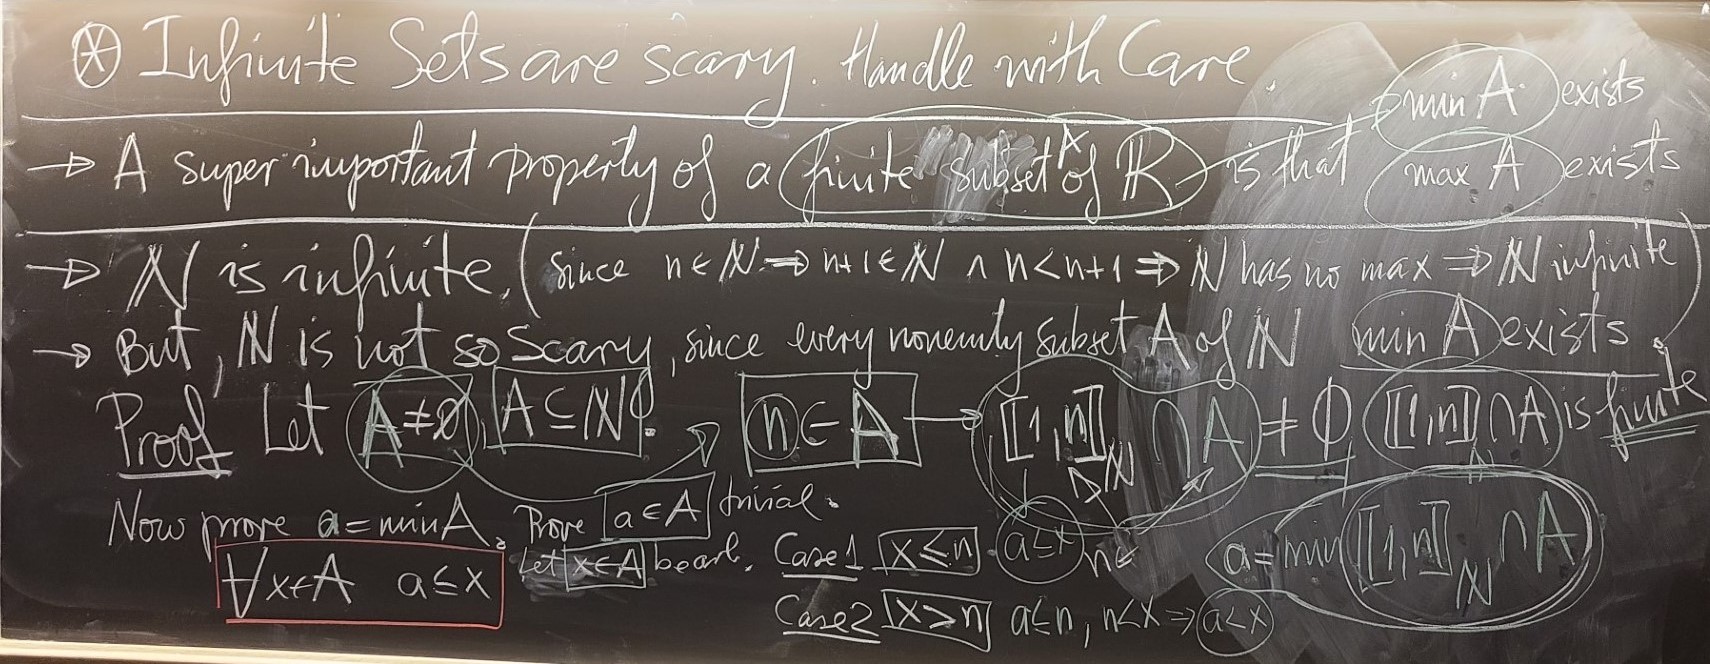 ⊛ Infinite Sets are scary. Handle with Care.
→ A super important property of a finite subset A of ℝ is that min A exists
max A exists
→ ℕ is infinite. (since n∈ℕ ⇒ n+1∈ℕ ∧ n<n+1 ⇒ ℕ has no max ⇒ ℕ infinite)
→ But, ℕ is not so scary, since every nonemty subset A of ℕ min A exists.
Proof Let A≠∅, A⊆ℕ. n∈A → ⟦1,n⟧_ℕ ∩ A ≠ ∅ ⟦1,n⟧_ℕ ∩ A is finite
Now prove a=min A. Prove a∈A trivial.
a = min ⟦1,n⟧_ℕ ∩ A
∀x∈A a≤x
Let x∈A be arb. Case 1 x≤n a≤x
Case 2 x>n a≤n, n<x ⇒ a<x